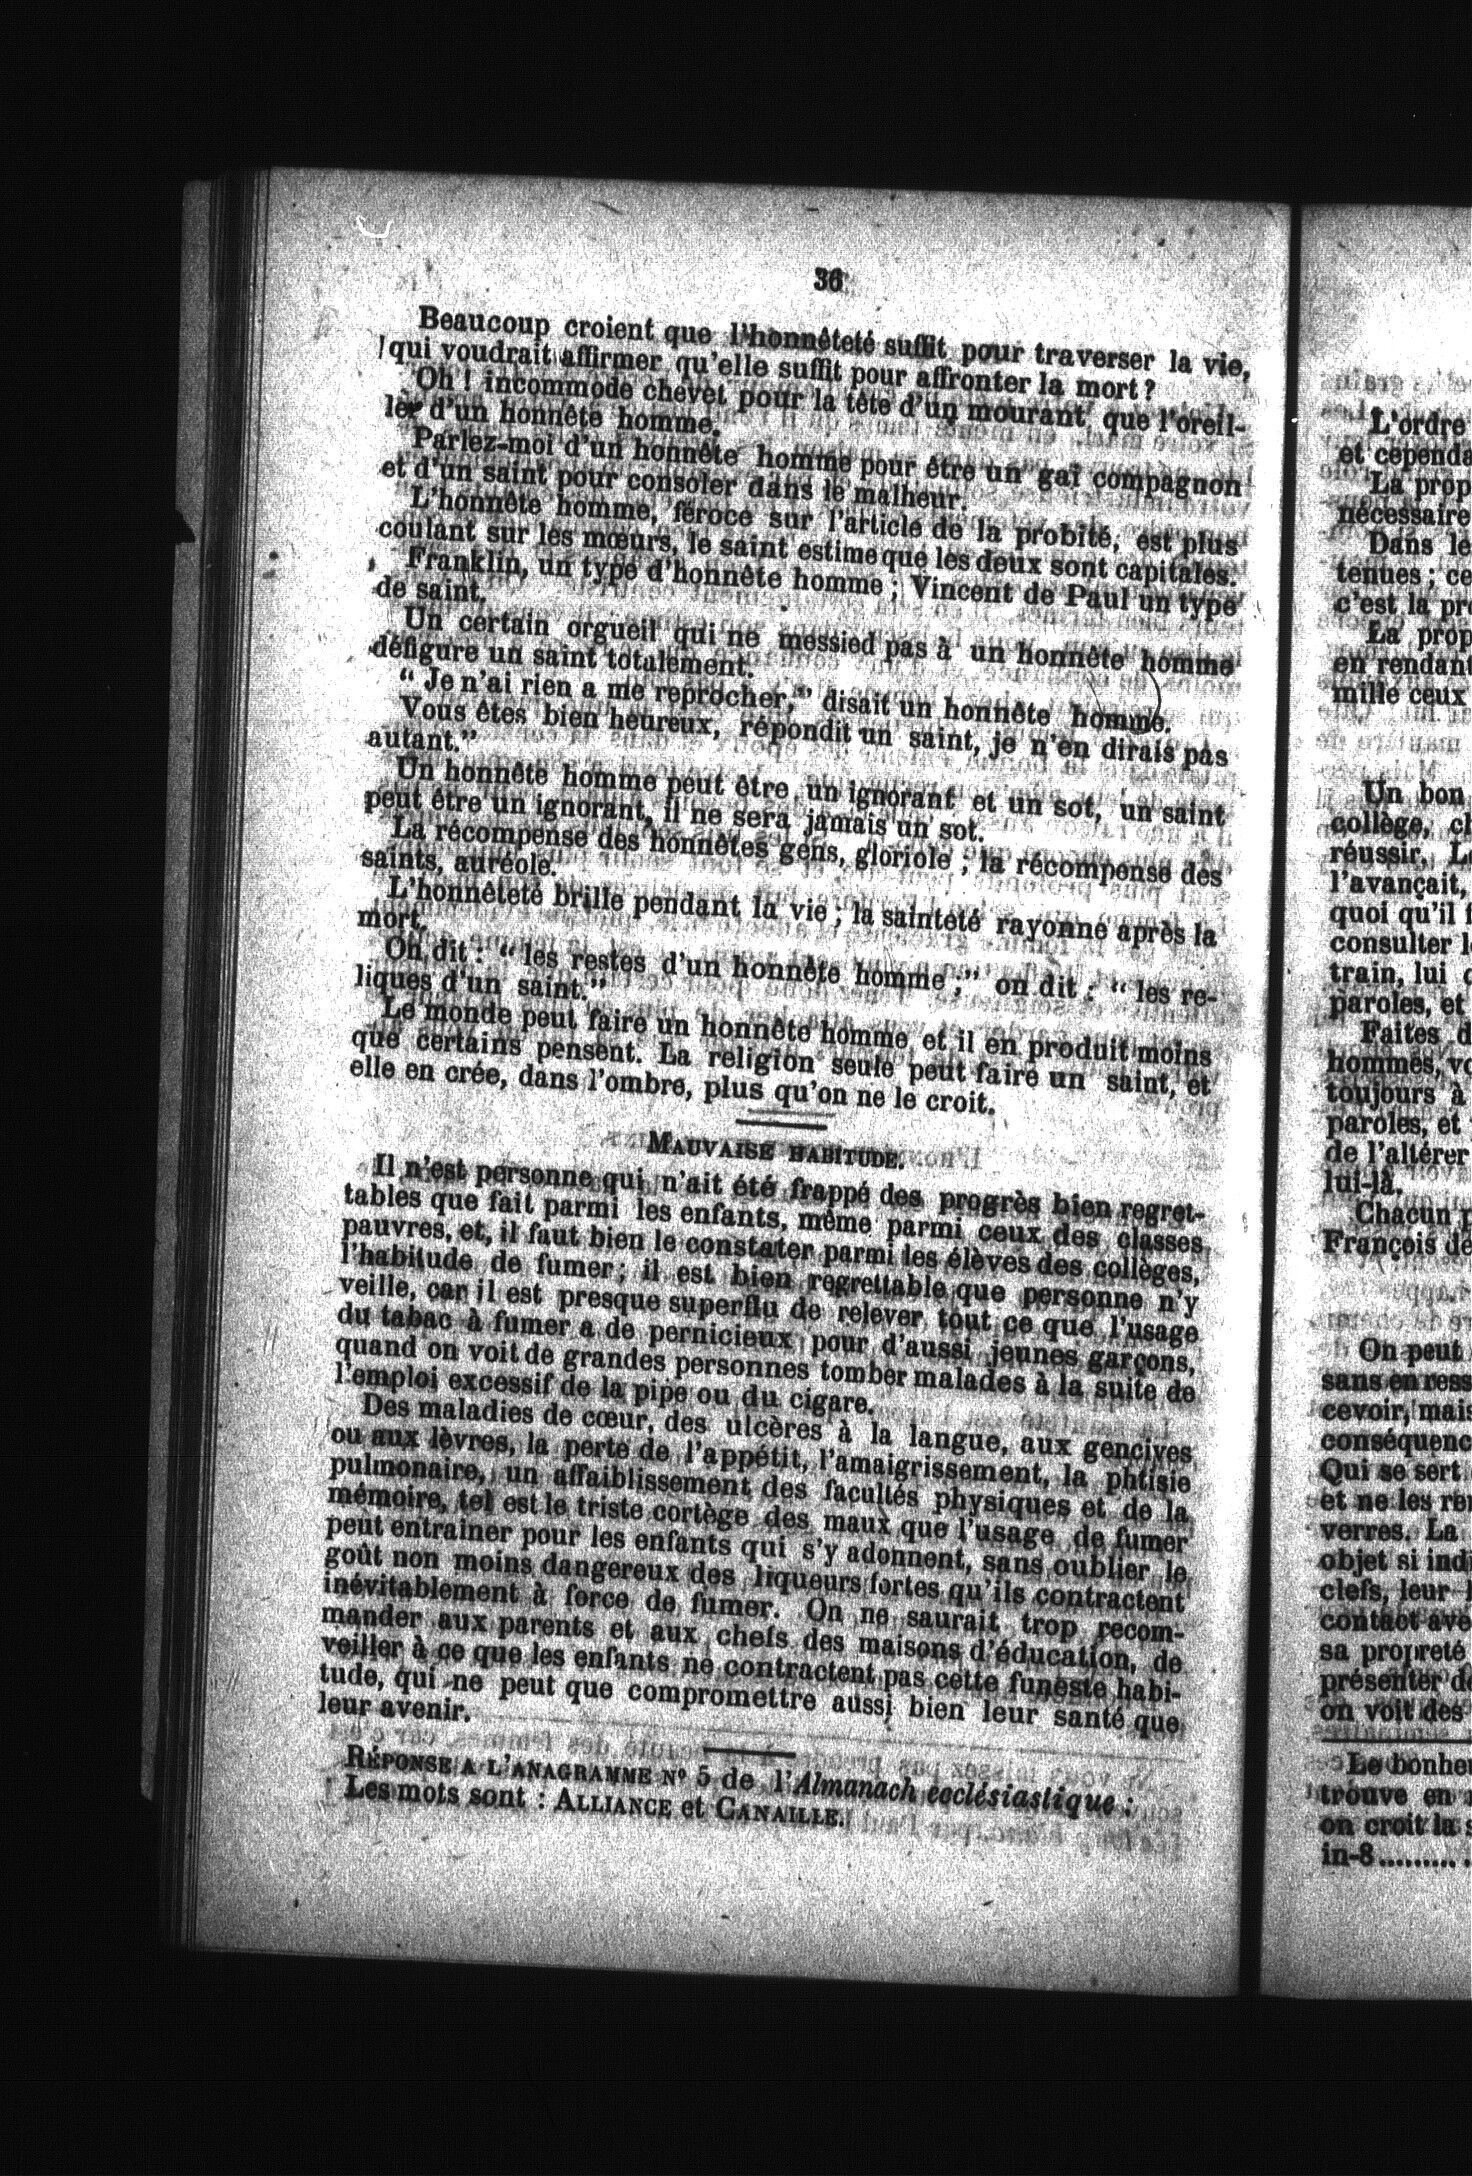 36
Beaucoup croient que l'honnêteté suffit pour traverser la vie,
qui voudrait affirmer qu'elle suffit pour affronter la mort ?
Oh ! incommode chevet pour la tête d'un mourant que l'oreil-
ler d'un honnête homme.
Parlez-moi d'un honnête homme pour être un gai compagnon
et d'un saint pour consoler dans le malheur.
L'honnête homme, féroce sur l'article de la probité, est plus
coulant sur les mœurs, le saint estime que les deux sont capitales.
Franklin, un type d'honnête homme ; Vincent de Paul un type
de saint.
Un certain orgueil qui ne messied pas à un honnête homme
défigure un saint totalement.
“ Je n'ai rien a me reprocher,” disait un honnête homme.
Vous êtes bien heureux, répondit un saint, je n'en dirais pas
autant.”
Un honnête homme peut être un ignorant et un sot, un saint
peut être un ignorant, il ne sera jamais un sot.
La récompense des honnêtes gens, gloriole ; la récompense des
saints, auréole.
L'honnêteté brille pendant la vie ; la sainteté rayonne après la
mort.
On dit : “ les restes d'un honnête homme ;” on dit : “ les re-
liques d'un saint.”
Le monde peut faire un honnête homme et il en produit moins
que certains pensent. La religion seule peut faire un saint, et
elle en crée, dans l'ombre, plus qu'on ne le croit.
MAUVAISE HABITUDE.
Il n'est personne qui n'ait été frappé des progrès bien regret-
tables que fait parmi les enfants, même parmi ceux des classes
pauvres, et, il faut bien le constater parmi les élèves des collèges,
l'habitude de fumer ; il est bien regrettable que personne n'y
veille, car il est presque superflu de relever tout ce que l'usage
du tabac à fumer a de pernicieux pour d'aussi jeunes garçons,
quand on voit de grandes personnes tomber malades à la suite de
l'emploi excessif de la pipe ou du cigare.
Des maladies de cœur, des ulcères à la langue, aux gencives
ou aux lèvres, la perte de l'appétit, l'amaigrissement, la phtisie
pulmonaire, un affaiblissement des facultés physiques et de la
mémoire, tel est le triste cortège des maux que l'usage de fumer
peut entrainer pour les enfants qui s'y adonnent, sans oublier le
goût non moins dangereux des liqueurs fortes qu'ils contractent
inévitablement à force de fumer. On ne saurait trop recom-
mander aux parents et aux chefs des maisons d'éducation, de
veiller à ce que les enfants ne contractent pas cette funeste habi-
tude, qui ne peut que compromettre aussi bien leur santé que
leur avenir.
RÉPONSE A L'ANAGRAMME Nº 5 de l'Almanach ecclésiastique :
Les mots sont : ALLIANCE et CANAILLE.
L'ordre
et cependa
La prop
nécessaire
Dans le
tenues ; ce
c'est la pr
La prop
en rendant
mille ceux
Un bon
collège, cl
réussir. L
l'avançait,
quoi qu'il
consulter l
train, lui
paroles, et
Faites d
hommes, vo
toujours à
paroles, et
de l'altérer
lui-là.
Chacun p
François de
On peut
sans en ress
cevoir, mais
conséquenc
Qui se sert
et ne les ren
verres. La
objet si indi
clefs, leur
contact ave
sa propreté
présenter de
on voit des
Le bonheu
trouve en
on croit la s
in-8..........